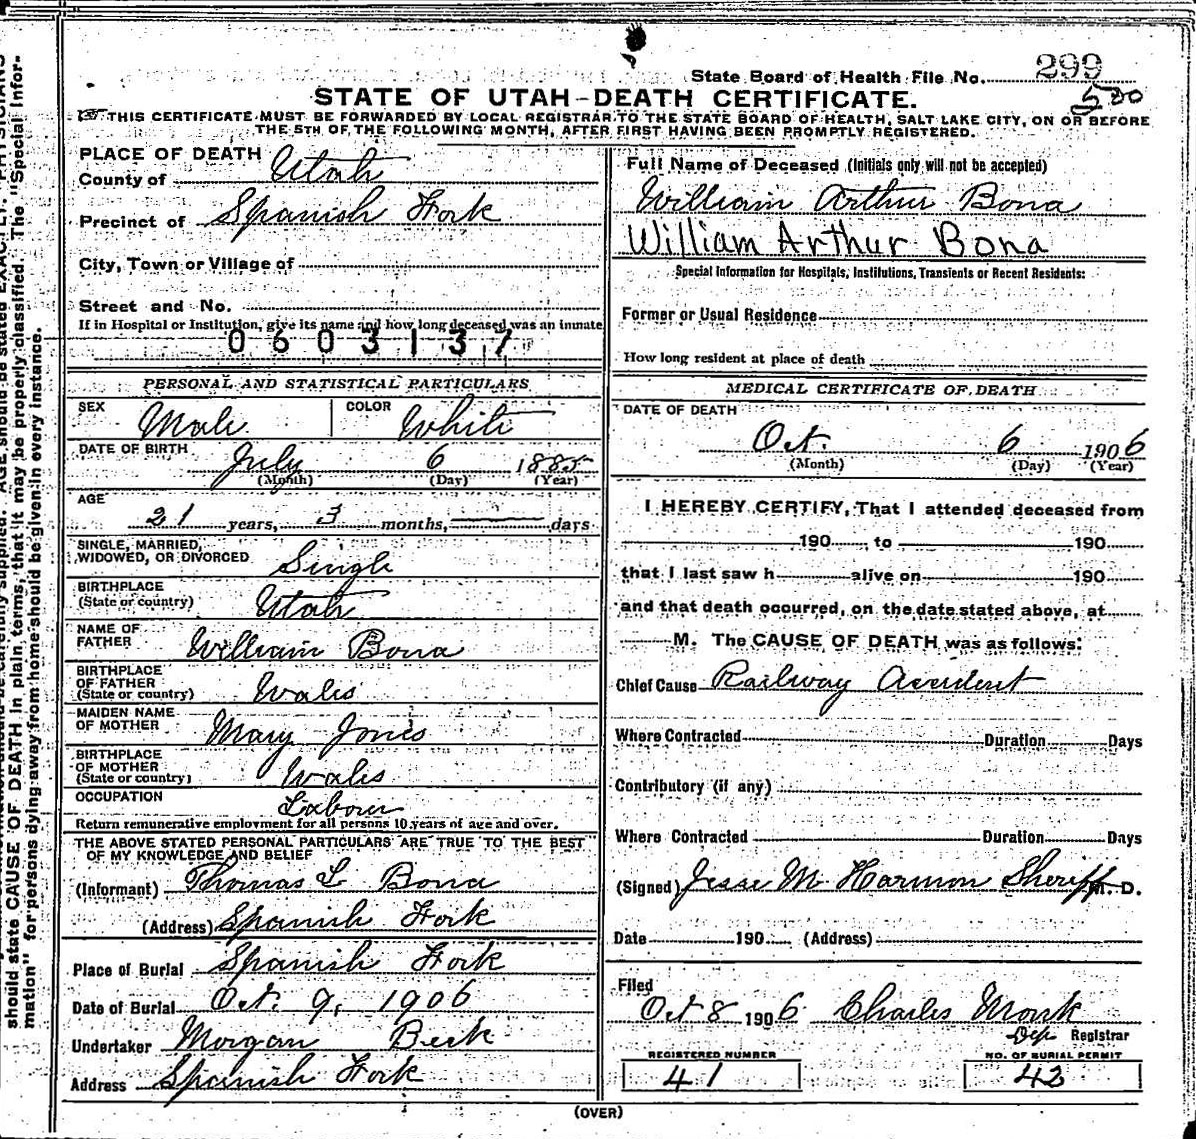 State Board of Health File No. 299
500
STATE OF UTAH-DEATH CERTIFICATE.
THIS CERTIFICATE MUST BE FORWARDED BY LOCAL REGISTRAR TO THE STATE BOARD OF HEALTH, SALT LAKE CITY, ON OR BEFORE
THE 5TH OF THE FOLLOWING MONTH, AFTER FIRST HAVING BEEN PROMPTLY REGISTERED.
PLACE OF DEATH
County of Utah
Precinct of Spanish Fork
City, Town or Village of
Street and No.
If in Hospital or Institution, give its name and how long deceased was an inmate
0603137
PERSONAL AND STATISTICAL PARTICULARS
SEX Male COLOR White
DATE OF BIRTH July 6 1885
(Month) (Day) (Year)
AGE
21 years, 3 months, days
SINGLE, MARRIED,
WIDOWED, OR DIVORCED Single
BIRTHPLACE
(State or country) Utah
NAME OF
FATHER William Bona
BIRTHPLACE
OF FATHER
(State or country) Wales
MAIDEN NAME
OF MOTHER Mary Jones
BIRTHPLACE
OF MOTHER
(State or country) Wales
OCCUPATION Laborer
Return remunerative employment for all persons 10 years of age and over.
THE ABOVE STATED PERSONAL PARTICULARS ARE TRUE TO THE BEST
OF MY KNOWLEDGE AND BELIEF
(Informant) Thomas L Bona
(Address) Spanish Fork
Place of Burial Spanish Fork
Date of Burial Oct. 9, 1906
Undertaker Morgan Beck
Address Spanish Fork
Full Name of Deceased (Initials only will not be accepted)
William Arthur Bona
William Arthur Bona
Special Information for Hospitals, Institutions, Transients or Recent Residents:
Former or Usual Residence
How long resident at place of death
MEDICAL CERTIFICATE OF DEATH
DATE OF DEATH
Oct. 6 1906
(Month) (Day) (Year)
I HEREBY CERTIFY, That I attended deceased from
190 , to 190
that I last saw h alive on 190
and that death occurred, on the date stated above, at
M. The CAUSE OF DEATH was as follows:
Chief Cause Railway Accident
Where Contracted Duration Days
Contributory (if any)
Where Contracted Duration Days
(Signed) Jesse M Harmon Sheriff M. D.
Date 190 (Address)
Filed
Oct 8 1906 Charles Monk
Dep Registrar
REGISTERED NUMBER
41
NO. OF BURIAL PERMIT
42
(OVER)
should state CAUSE OF DEATH in plain terms, that it may be properly classified. The "Special Infor-
mation" for persons dying away from home should be given in every instance.